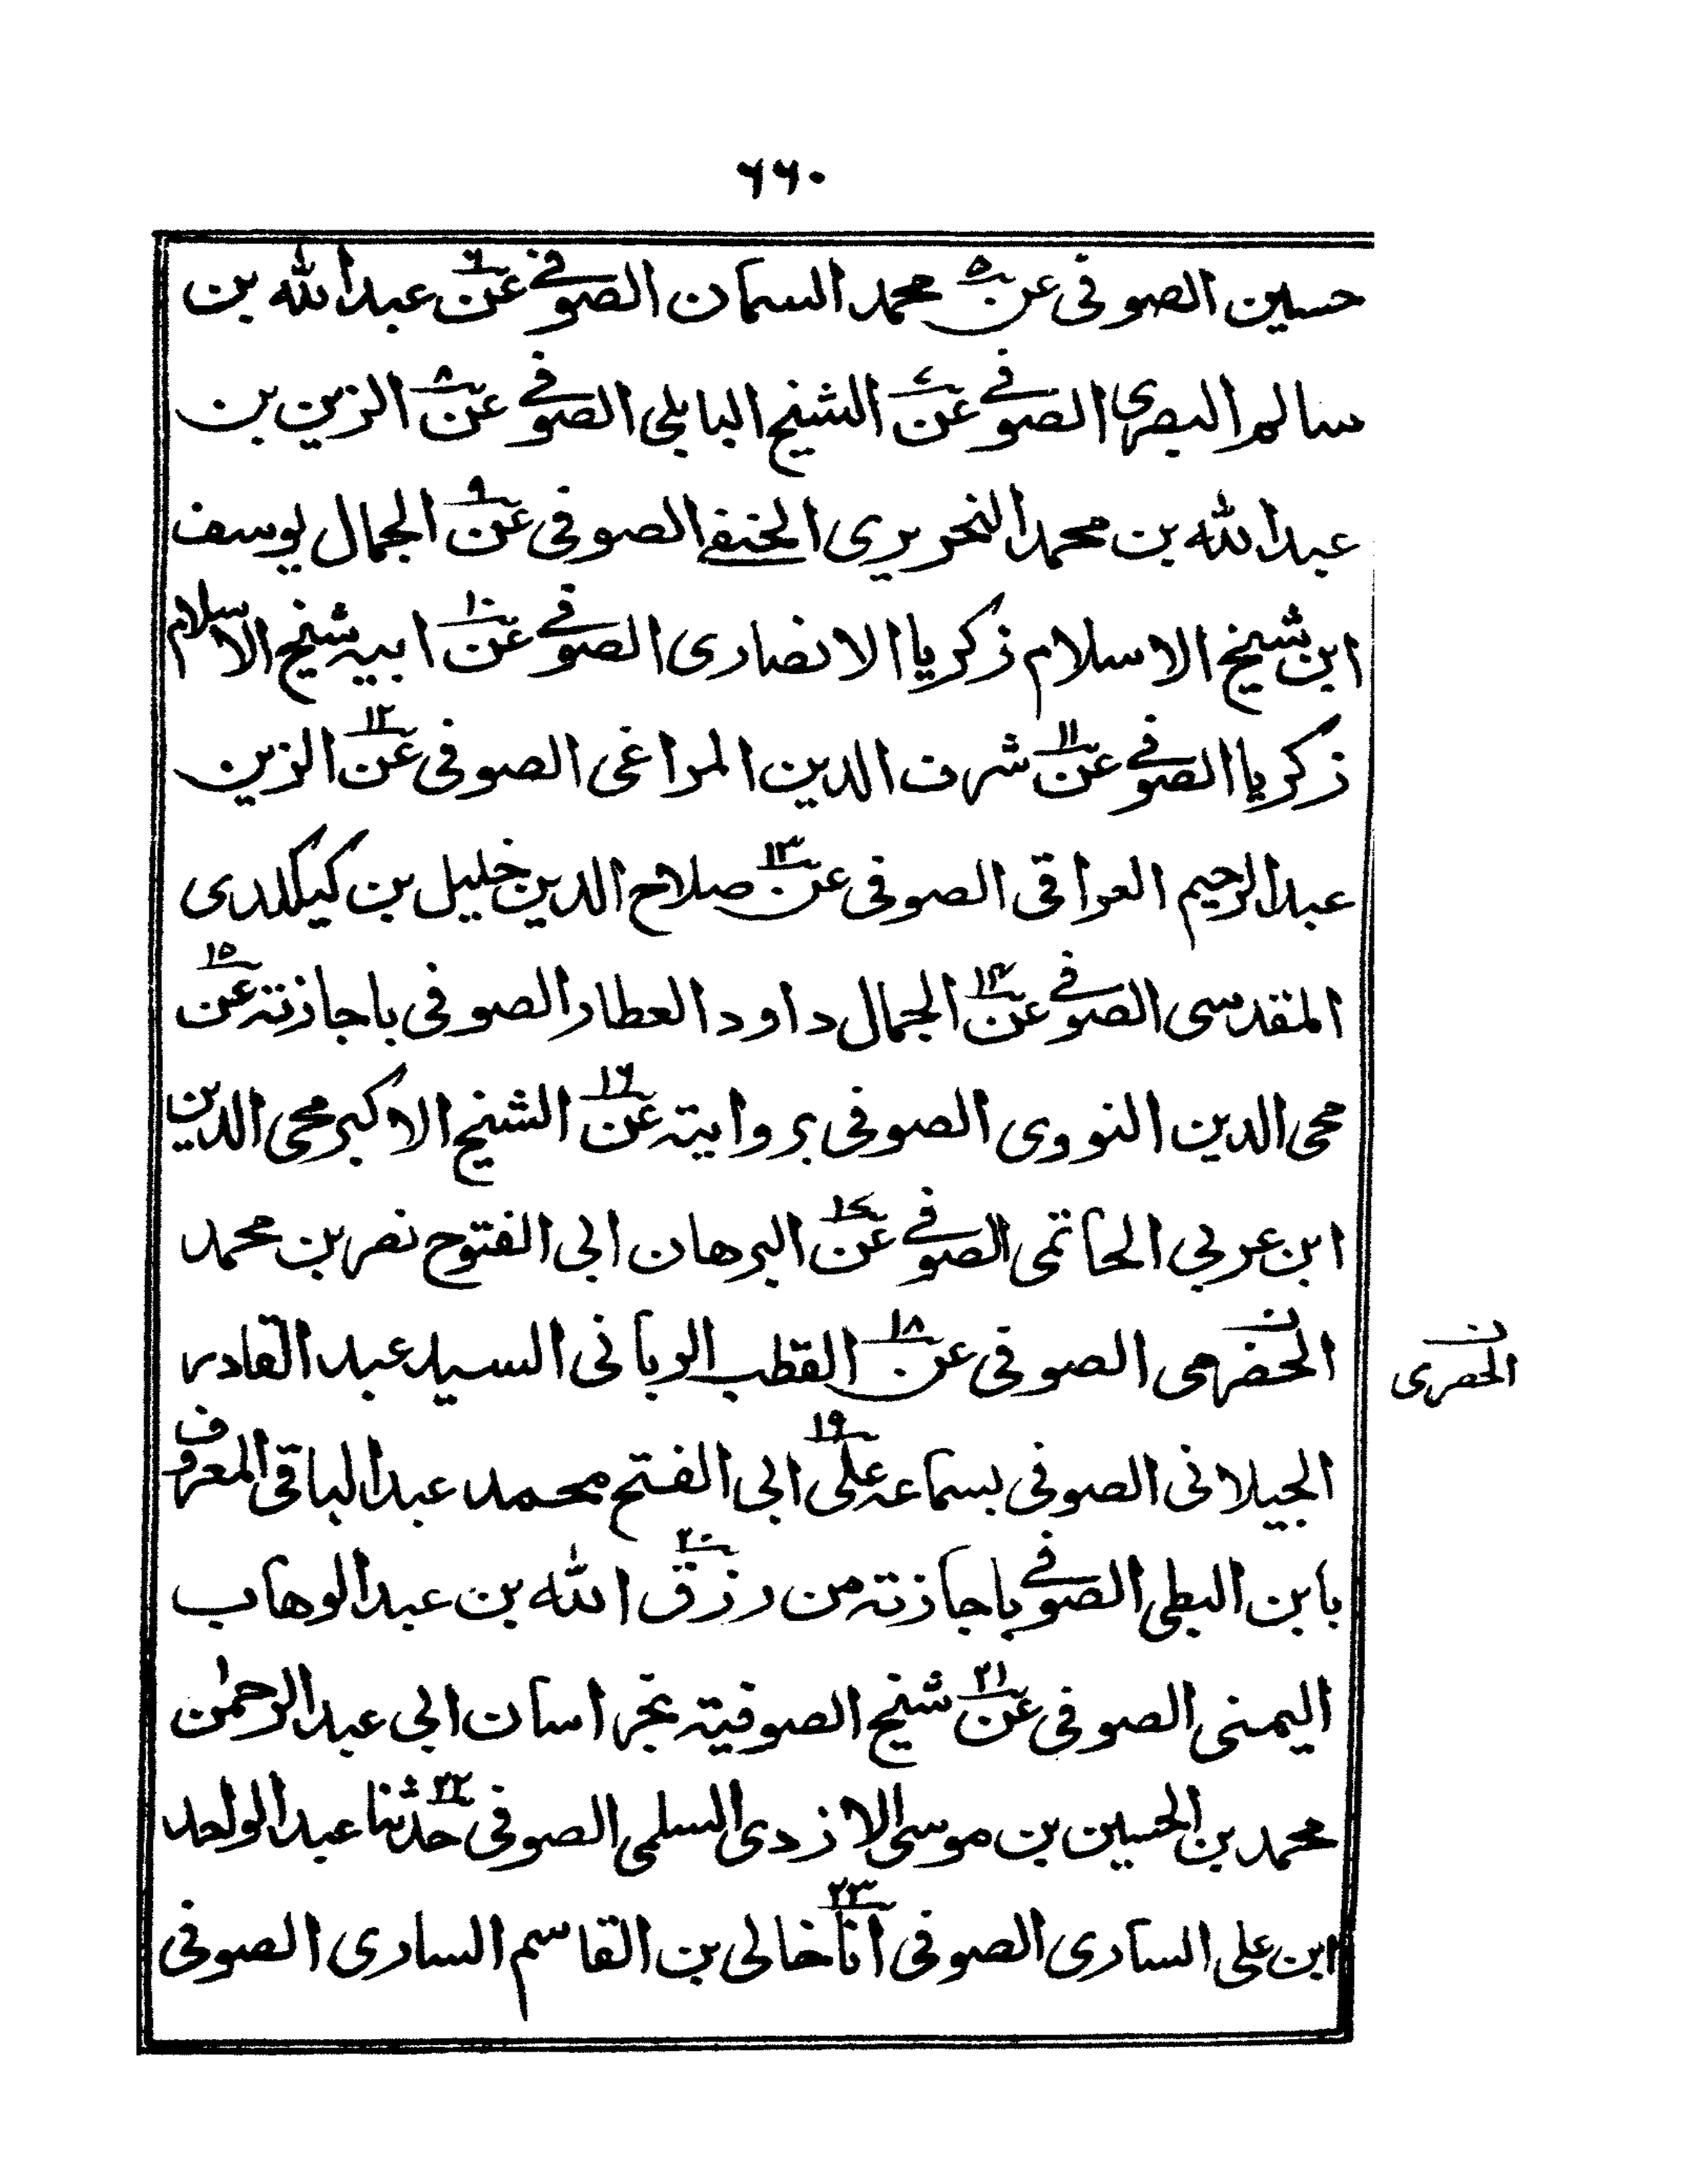 ۶۶۰
حسین الصوفی عن ۵ محمد السمان الصوفی عن ۶ عبد الله بن
سالم البصری الصوفی عن ۷ الشیخ البابلی الصوفی عن ۸ الزین بن
عبد الله بن محمد النحریری الحنفی الصوفی عن ۹ الجمال یوسف
ابن شیخ الاسلام زکریا الانصاری الصوفی عن ۱۰ ابیه شیخ الاسلام
زکریا الصوفی عن ۱۱ شرف الدین المراغی الصوفی عن ۱۲ الزین
عبد الرحیم العراقی الصوفی عن ۱۳ صلاح الدین خلیل بن کیکلدی
المقدسی الصوفی عن ۱۴ الجمال داود العطار الصوفی باجازته عن ۱۵
محی الدین النووی الصوفی بروایته عن ۱۶ الشیخ الاکبر محی الدین
ابن عربی الحاتمی الصوفی عن ۱۷ البرهان ابی الفتوح نصر بن محمد
الحضرمی الصوفی عن ۱۸ القطب الربانی السید عبد القادر
ن الحصری
الجیلانی الصوفی بسماعه علی ۱۹ ابی الفتح محمد عبد الباقی المعروف
بابن البطی الصوفی باجازته من ۲۰ رزق الله بن عبد الوهاب
الیمنی الصوفی عن ۲۱ شیخ الصوفیة بخراسان ابی عبد الرحمٰن
محمد بن الحسین بن موسی الازدی السلمی الصوفی ۲۲ حدثنا عبد الواحد
ابن علی الساری الصوفی ۲۳ انا خالی بن القاسم الساری الصوفی